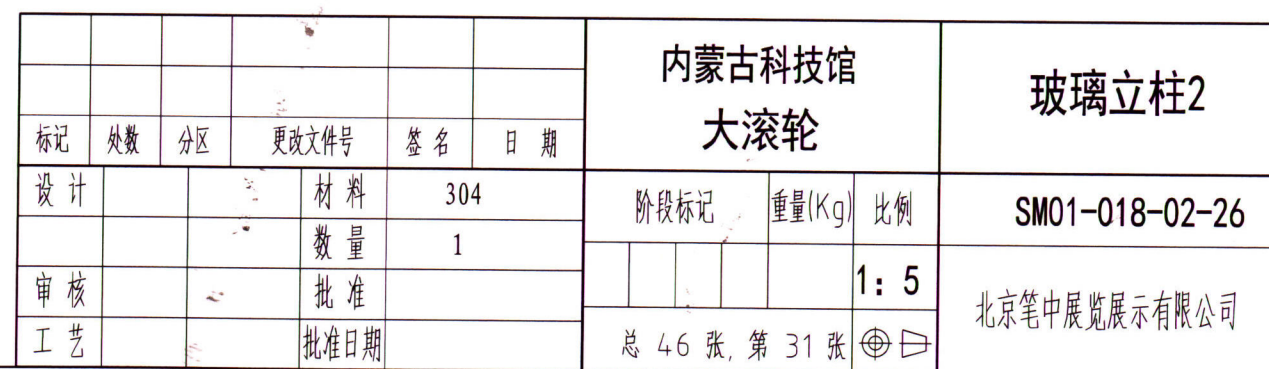 标记 处数 分区 更改文件号 签名 日期
设计 材料 304
数量 1
审核 批准
工艺 批准日期
内蒙古科技馆
大滚轮
阶段标记 重量(Kg) 比例
1:5
总 46 张, 第 31 张
玻璃立柱2
SM01-018-02-26
北京笔中展览展示有限公司